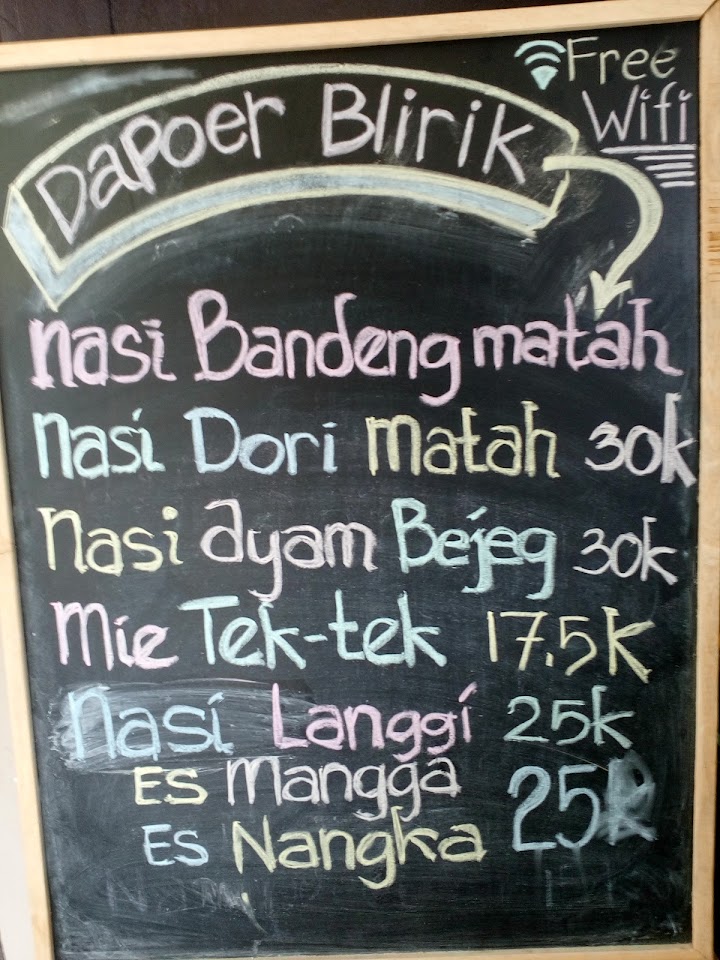 Free
Wifi
Dapoer Blirik
nasi Bandeng matah
nasi Dori matah 30k
nasi ayam Bejeg 30k
Mie Tek-tek 17.5k
Nasi Langgi 25k
Es Mangga
25k
Es Nangka